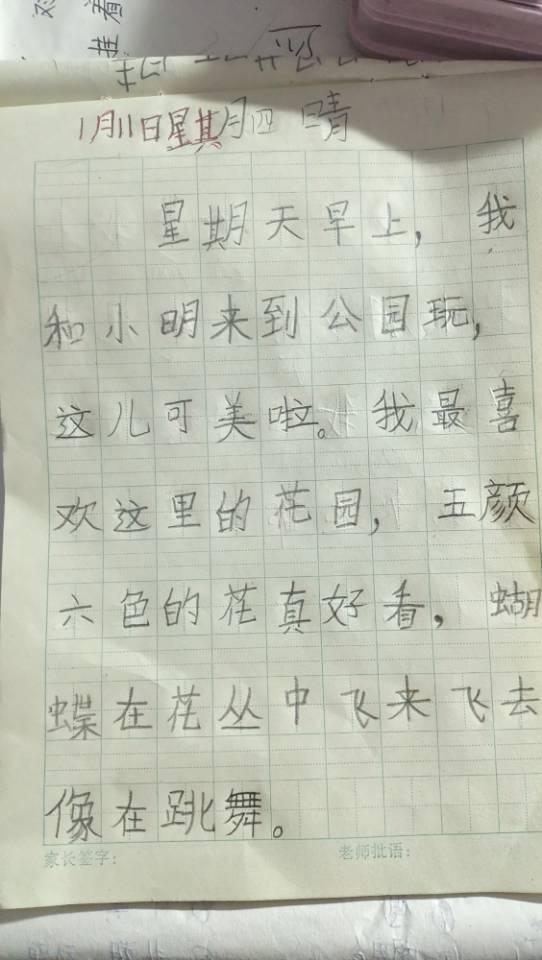 1月11日星期四 晴
星期天早上，我
和小明来到公园玩，
这儿可美啦。我最喜
欢这里的花园，五颜
六色的花真好看，蝴
蝶在花丛中飞来飞去
像在跳舞。
家长签字： 老师批语：